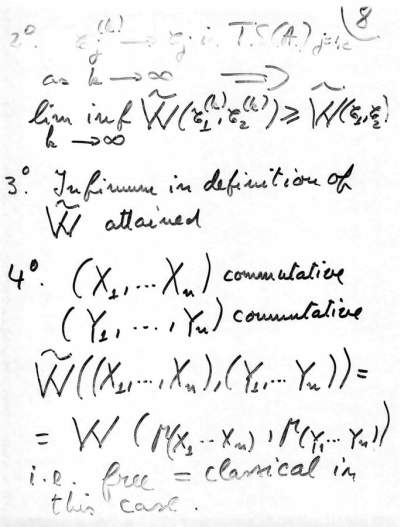 8
2°. ξ_j^(k) → ξ_j in T.S(A.) j=1,2
as k → ∞ ⟹
lim inf W̃(ξ_1^(k), ξ_2^(k)) ⩾ W̃(ξ_1, ξ_2)
k → ∞
3°. Infimum in definition of
W̃ attained
4°. (X_1, ... X_n) commutative
(Y_1, ..., Y_n) commutative
W̃((X_1, ..., X_n), (Y_1, ... Y_n)) =
= W (μ(X_1 ... X_n), μ(Y_1 ... Y_n))
i.e. free = classical in
this case.